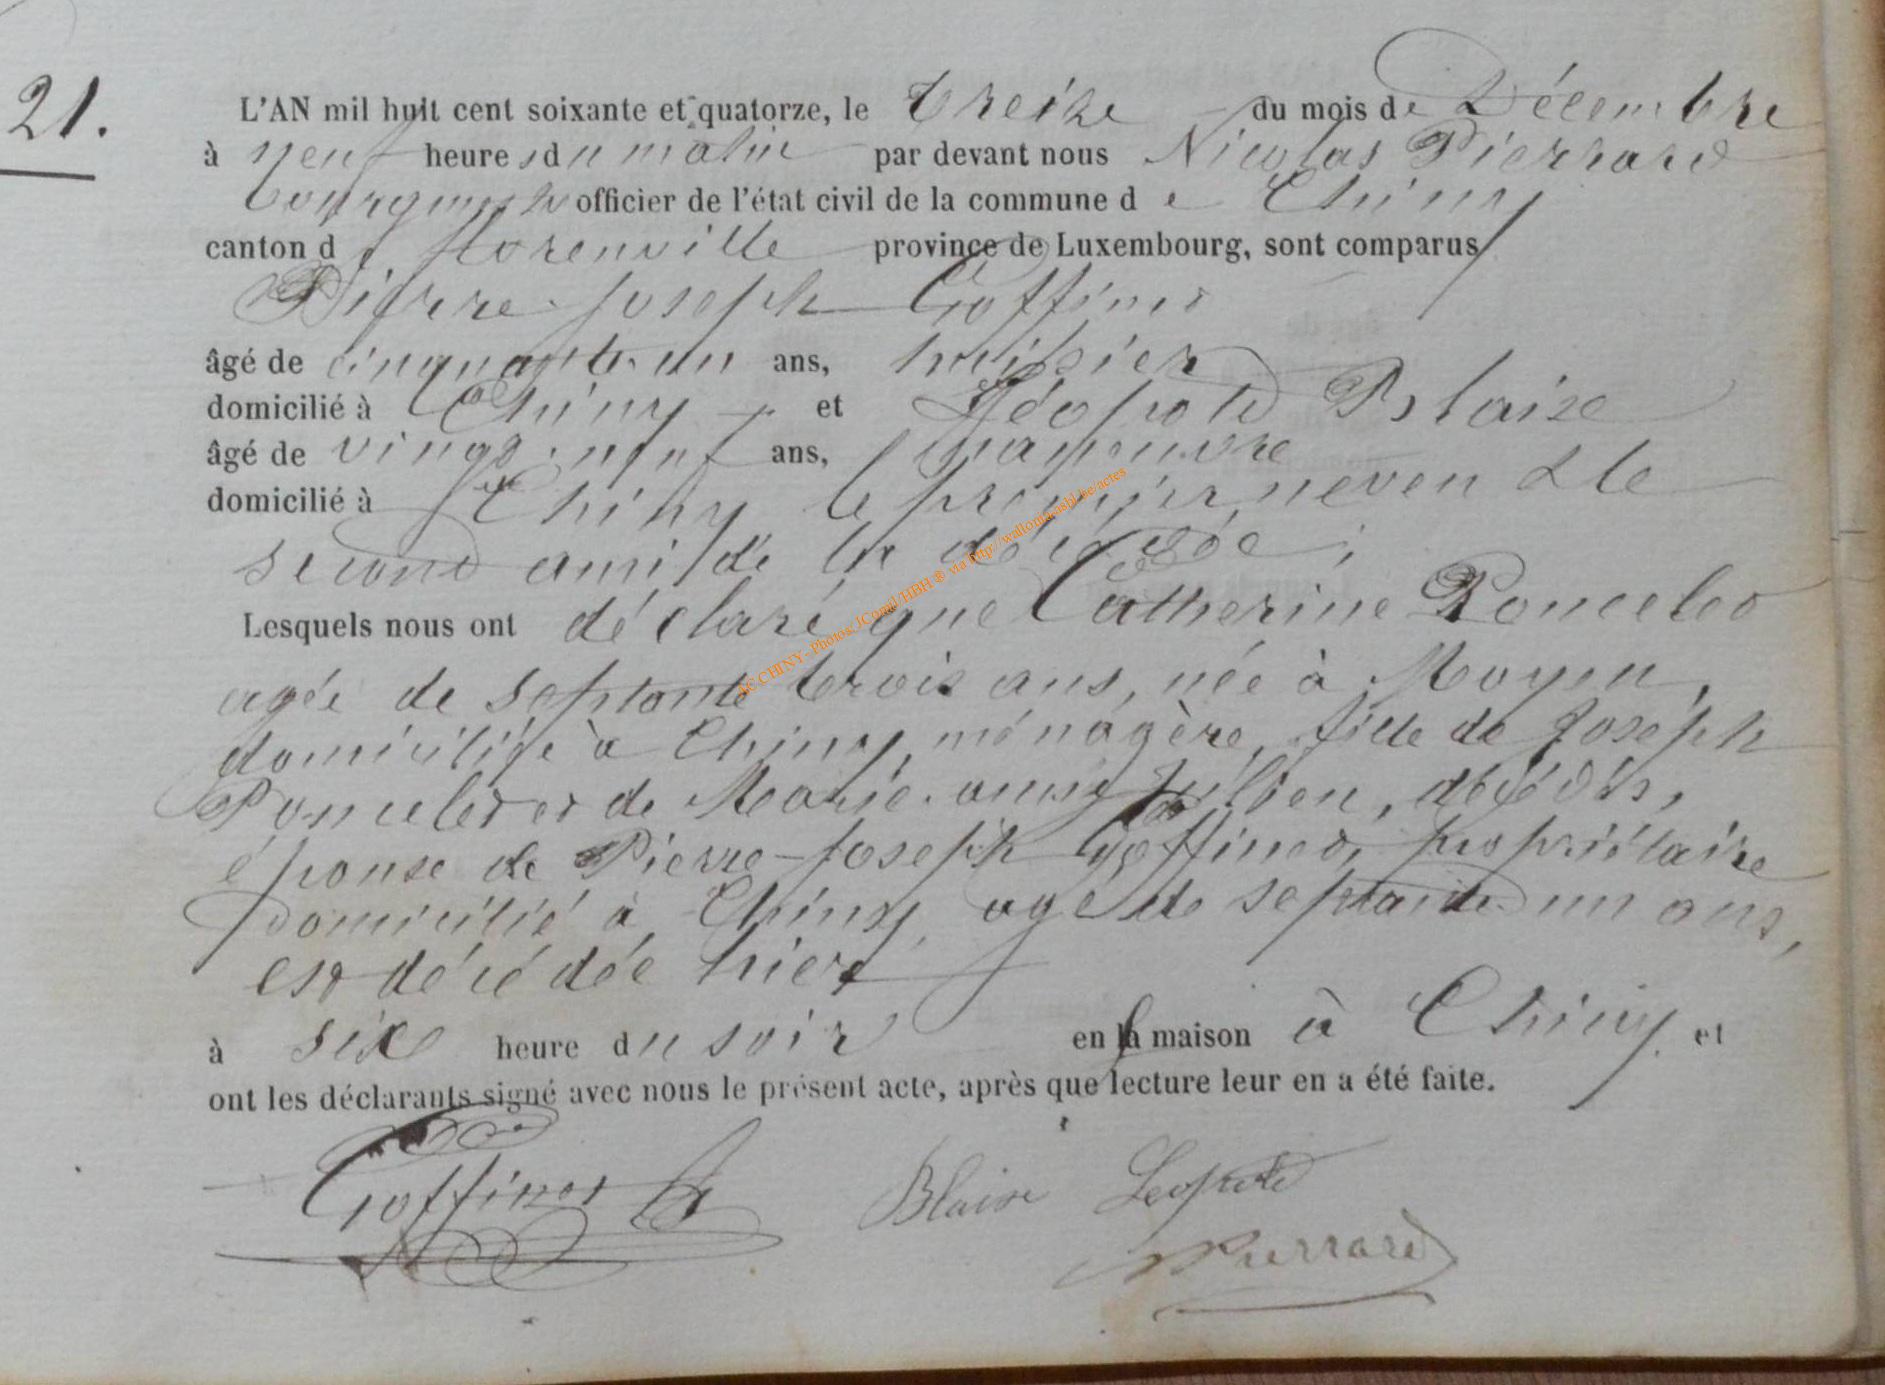 21.
L'AN mil huit cent soixante et quatorze, le treize du mois de Décembre
à neuf heures du matin par devant nous Nicolas Pierrard
bourgmestre officier de l'état civil de la commune de Chiny
canton d florenville province de Luxembourg, sont comparus
Pierre Joseph Goffinet
âgé de cinquante un ans, huissier
domicilié à Chiny et Léopold Blaise
âgé de vingt-neuf ans, manoeuvre
domicilié à Chiny le premier neveu & le
second ami de la décédée ;
Lesquels nous ont déclaré que Catherine Poncelet
agée de septante trois ans, née à Moyen,
domiciliée à Chiny, ménagère, fille de Joseph
Poncelet et de Marie-anne Julien, décédés,
épouse de Pierre-Joseph Goffinet, propriétaire
domicilié à Chiny, agé de septante un ans,
est décédée hier
à six heure du soir en sa maison à Chiny et
ont les déclarants signé avec nous le présent acte, après que lecture leur en a été faite.
Goffinet Blaise Léopold
NPierrard
AC CHINY - Photos: JComil/HBH ® via http://wallonia-asbl.be/actes